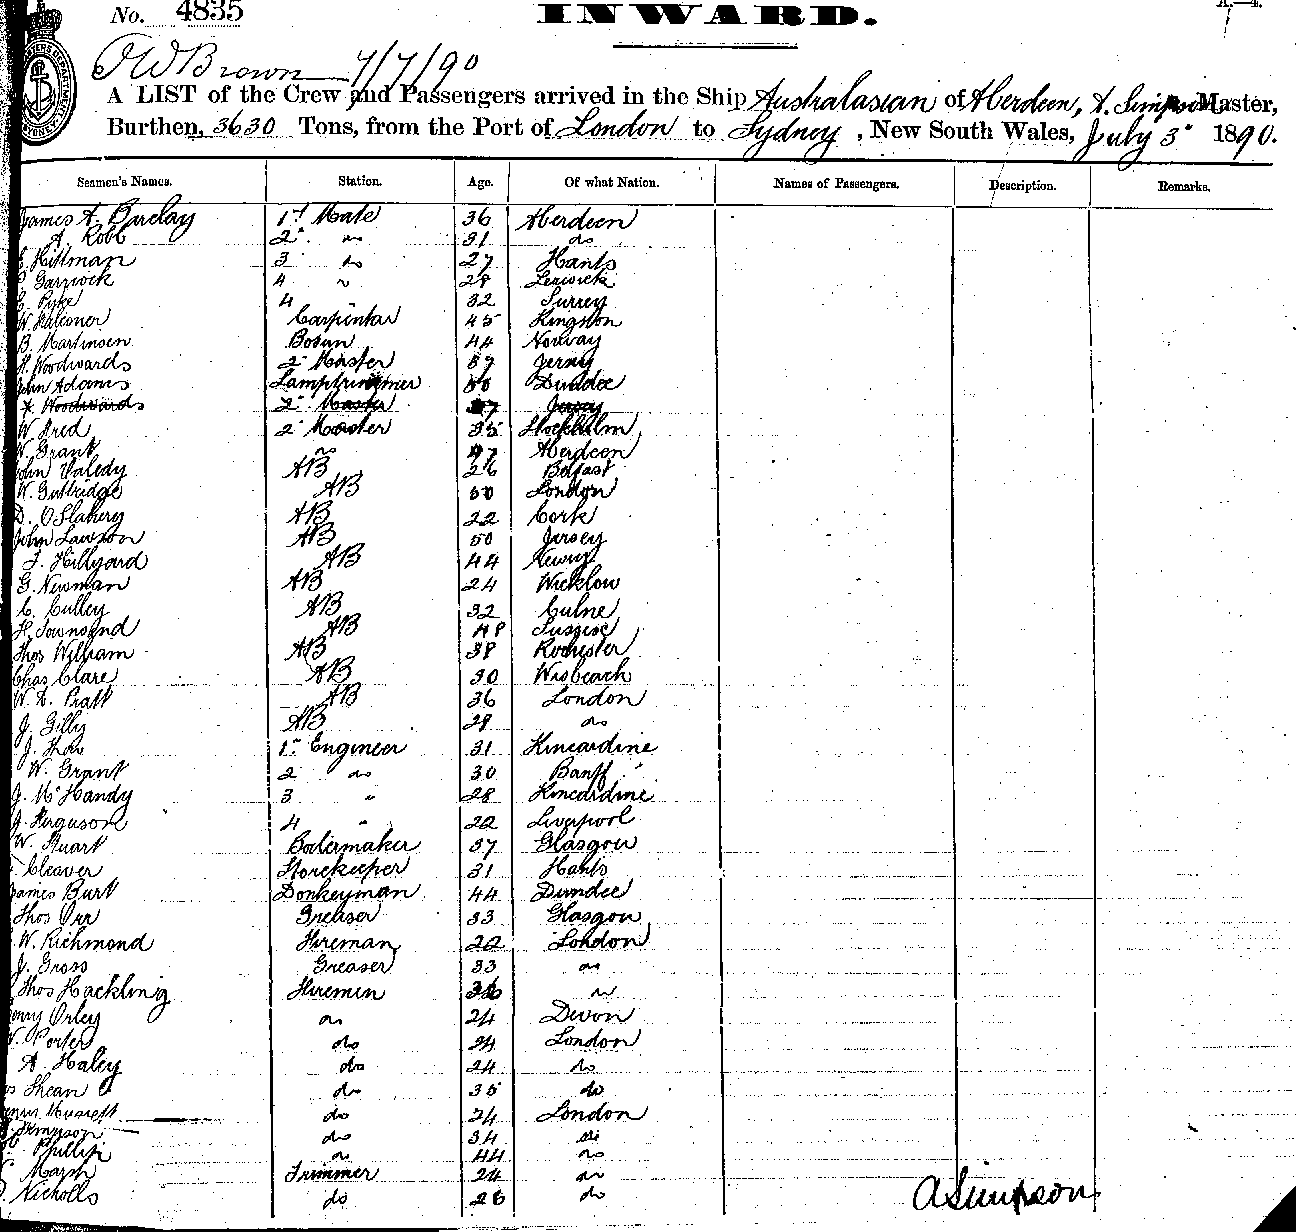 No. 4835
INWARD.
A.—4.
CUSTOMS DEPARTMENT SYDNEY
T W Brown 7/7/90
A LIST of the Crew and Passengers arrived in the Ship Australasian of Aberdeen, A. Simpson Master,
Burthen, 3630 Tons, from the Port of London to Sydney, New South Wales, July 3d 1890.
Seamen's Names. Station. Age. Of what Nation. Names of Passengers. Description. Remarks.
James A. Barclay 1st Mate 36 Aberdeen
A. Robb 2d do 31 do
Hittman 3 do 27 Hants
Garriock 4 " 28 Lerwick
Pyke 4 32 Surrey
W. Falconer Carpenter 45 Kingston
B. Martinsen Bosun 44 Norway
H. Woodwards 2d Master 37 Jersey
John Adams Lamptrimmer 50 Dundee
H. Woodwards 2d Master 37 Jersey
W. Fred 2d Master 35 Stockholm
W. Grant do 47 Aberdeen
John Valedy AB 26 Belfast
W. Guttridge AB 50 London
D. OSlahery AB 22 Cork
John Lawson AB 50 Jersey
J. Hillyard AB 44 Newry
G. Newman AB 24 Wicklow
C. Culley AB 32 Culne
H. Townsend AB 48 Sussex
Thos William AB 38 Rochester
Chas Clare AB 30 Wisbeach
W. D. Pratt AB 36 London
J. Gilly AB 28 do
J. Shaw 1st Engineer 31 Kincardine
W. Grant 2 do 30 Banff
J. McHandy 3 " 28 Kincardine
J. Ferguson 4 " 22 Liverpool
W. Stuart Boilermaker 37 Glasgow
Cleaver Storekeeper 31 Hants
James Burt Donkeyman 44 Dundee
Thos Orr Greaser 33 Glasgow
W. Richmond Fireman 22 London
J. Gross Greaser 33 do
Thos Hackling Firemen do
Henry Orley do 24 Devon
W. Porter do 24 London
A. Haley do 24 do
Shean do 35 do
do 24 London
do 34 do
Phillip do 44 do
Marsh Trimmer 24 do
Nicholls do 26 do
A Simpson